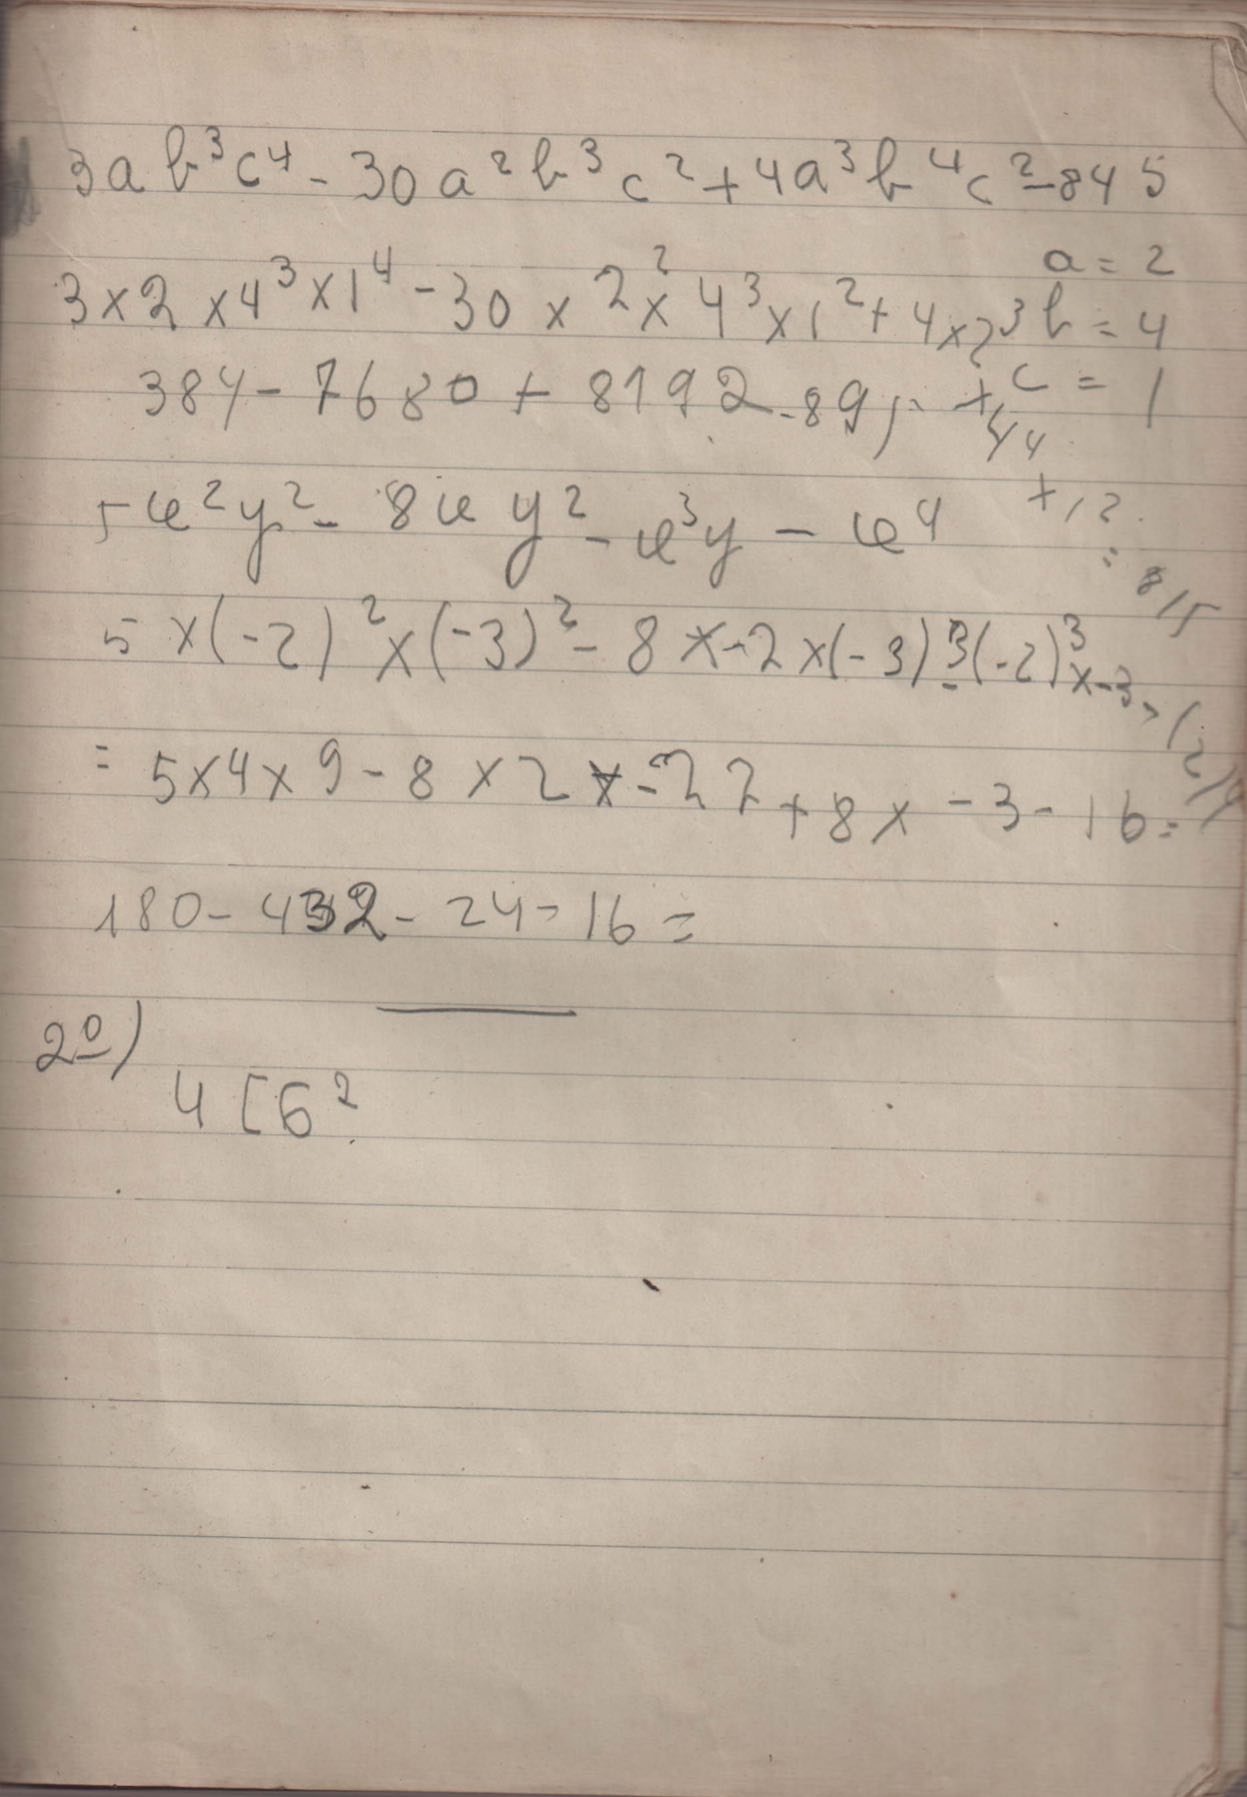 3ab³c⁴ - 30a²b³c² + 4a³b⁴c² - 845
a = 2
3 x 2 x 4³ x 1⁴ - 30 x 2² x 4³ x 1² + 4 x 2³ b = 4
384 - 7680 + 8192 - 89 x c = 1
4⁴
x 1²
5x²y² - 8xy² - x³y - x⁴
= 815
5 x (-2)² x (-3)² - 8 x -2 x (-3)³ - (-2)³ x -3 - (2)4
= 5 x 4 x 9 - 8 x 2 x -27 + 8 x -3 - 16 =
180 - 432 - 24 - 16 =
2º)
4 [6²